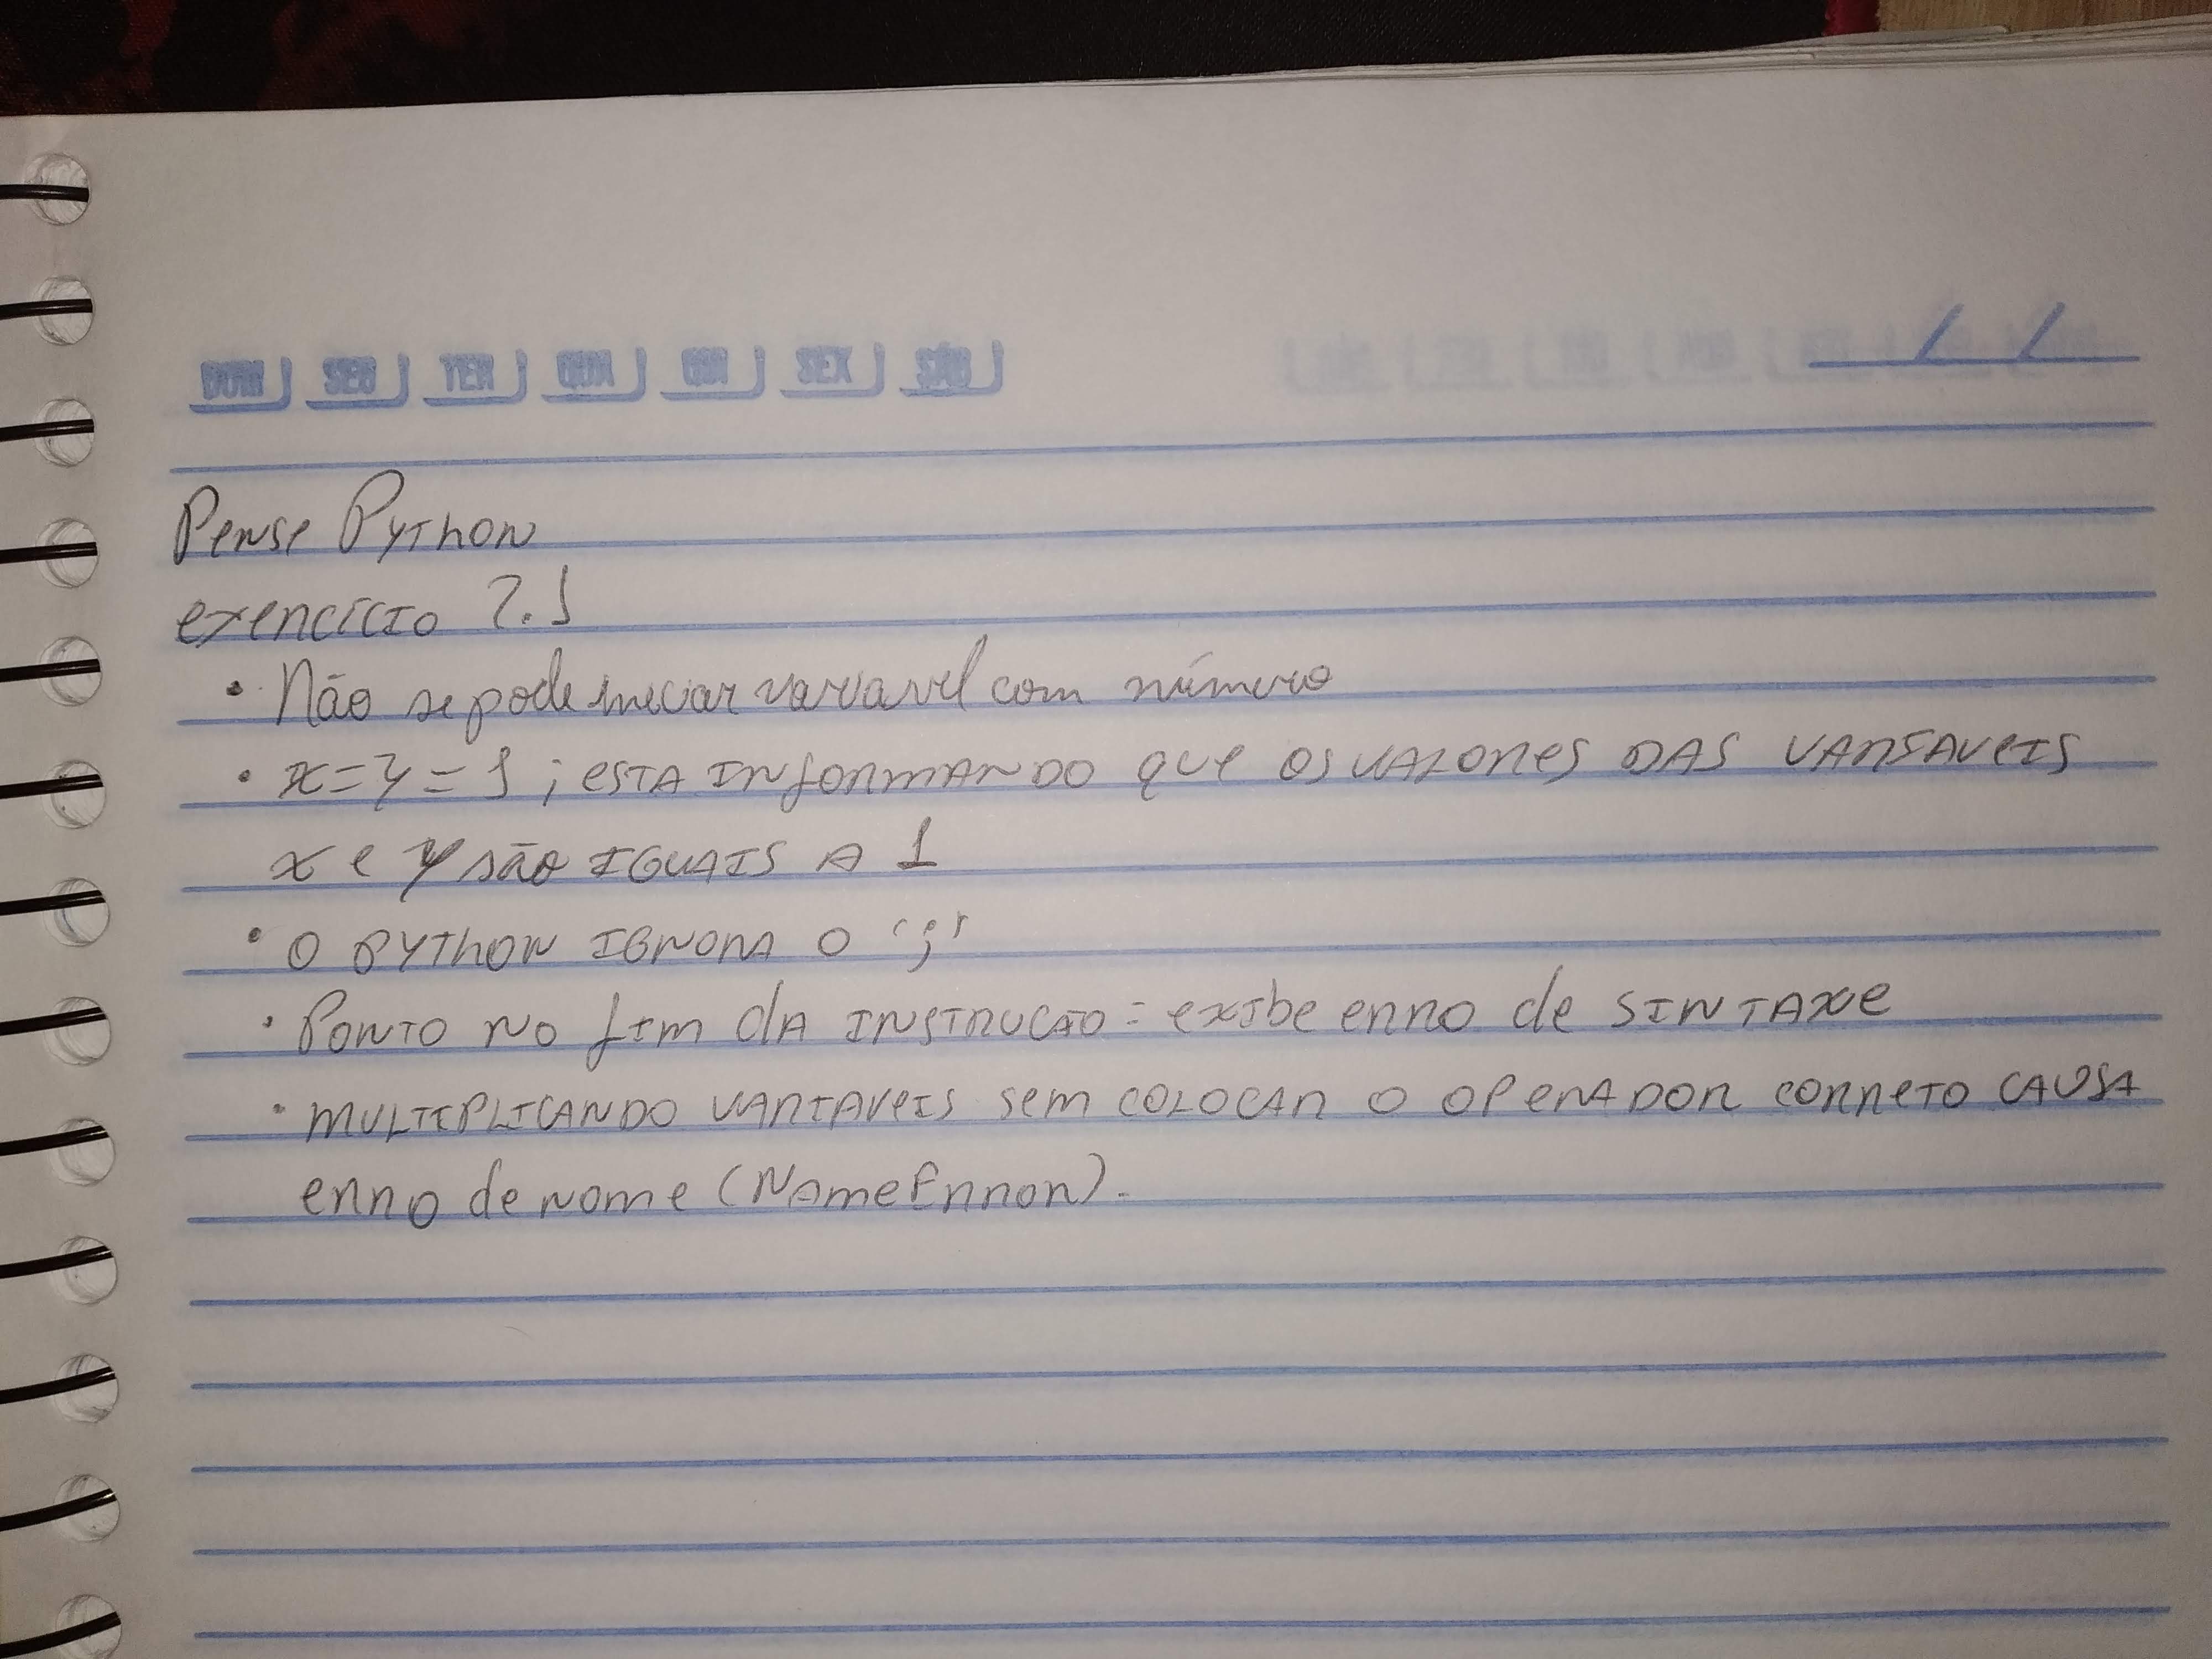 DOM SEG TER QUA QUI SEX SÁB
Pense Python
exercício 2.1
• Não se pode iniciar variavel com número
• x=y=1; ESTA INFORMANDO que OS VALORES DAS VARIAVEIS
x e y são IGUAIS A 1
• O PYTHON IGNORA O ';'
• PONTO NO FIM DA INSTRUCÃO = exibe erro de SINTAXE
• MULTIPLICANDO VARIAVEIS sem COLOCAR O OPERADOR CORRETO CAUSA
erro de nome (NameError).